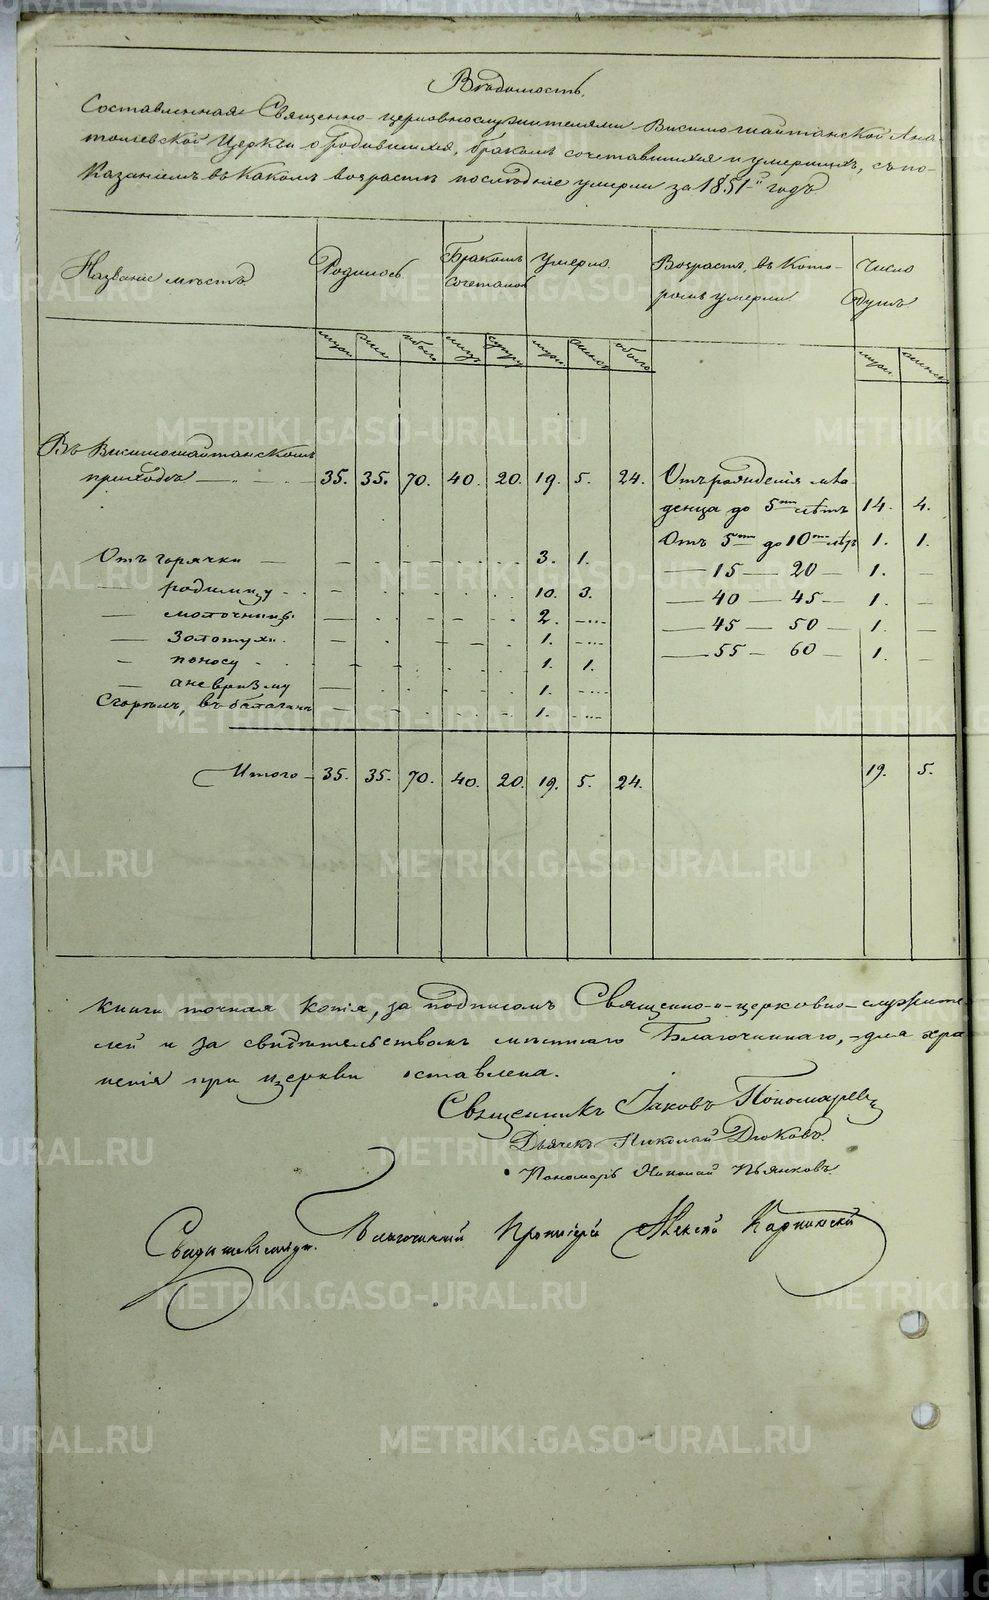 Вѣдомость,
Составленная Священно-церковнослужителями Висимошайтанской Ана-
толіевской Церкви о родившихся, бракомъ сочетавшихся и умершихъ, съ по-
казаніемъ въ какомъ возрастѣ послѣдніе умерли за 1851й годъ
Названіе мѣстъ
Родилось
Бракомъ сочеталось
Умерло
Возрастъ, въ кото-
ромъ умерли
Число
душъ
муж. жен. обоего муж. супру. муж. женск. обоего муж. женск.
Въ Висимошайтанскомъ
приходѣ — 35. 35. 70. 40. 20. 19. 5. 24.
Отъ рожденія мла-
денца до 5ти лѣтъ 14. 4.
Отъ 5ти до 10ти лѣтъ 1. 1.
— 15 — 20 — 1. —
— 40 — 45 — 1. —
— 45 — 50 — 1. —
— 55 — 60 — 1. —
Отъ горячки — 3. 1.
— родимцу 10. 3.
— молочницы 2. —
— золотухи 1. —
— поносу 1. 1.
— аневризму 1. —
Сгорѣлъ, въ балаганѣ 1. —
Итого — 35. 35. 70. 40. 20. 19. 5. 24. 19. 5.
книги точная копія, за подписомъ Священно-и-церковно-служите-
лей и за свидѣтельствомъ мѣстнаго Благочиннаго, для хра-
ненія при церкви оставлена.
Священникъ Іаковъ Пономаревъ
Дьячекъ Николай Дюковъ.
Пономарь Николай Пьянковъ
Свидѣтельствовалъ Благочинный Протоіерей Алексѣй Карпинскій
METRIKI.GASO-URAL.RU